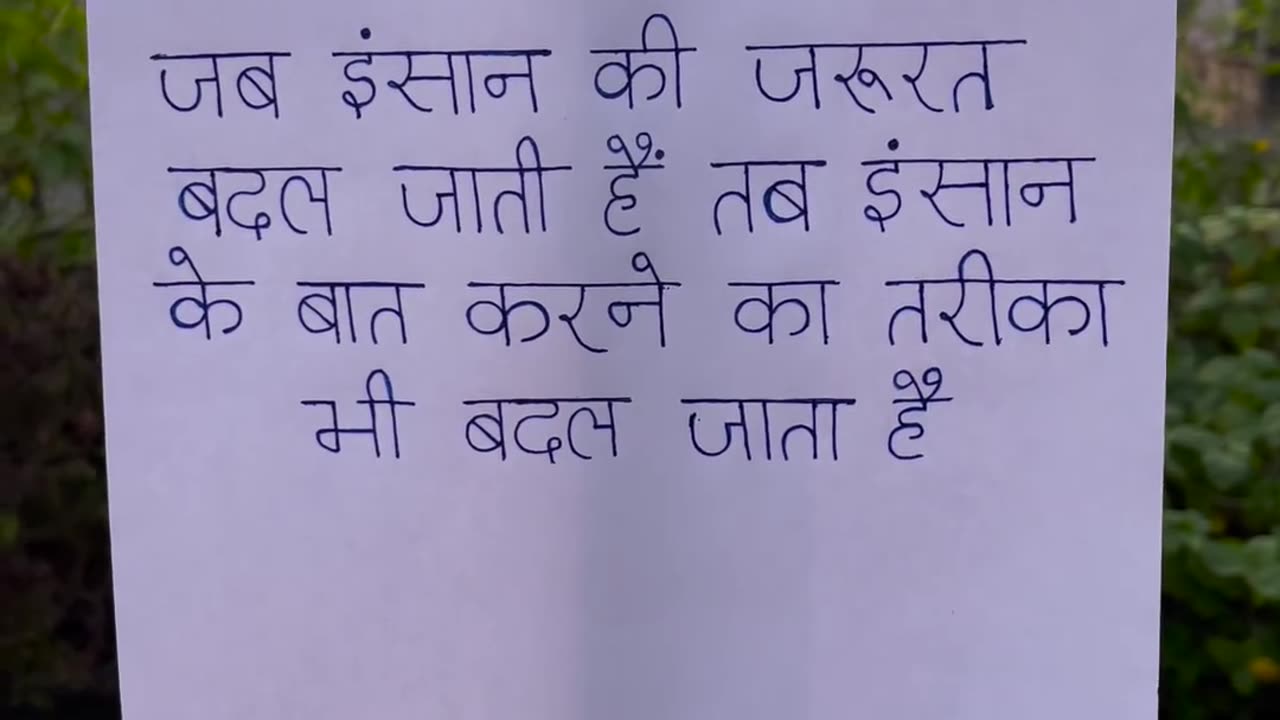 जब इंसान की जरूरत
बदल जाती हैं तब इंसान
के बात करने का तरीका
भी बदल जाता है